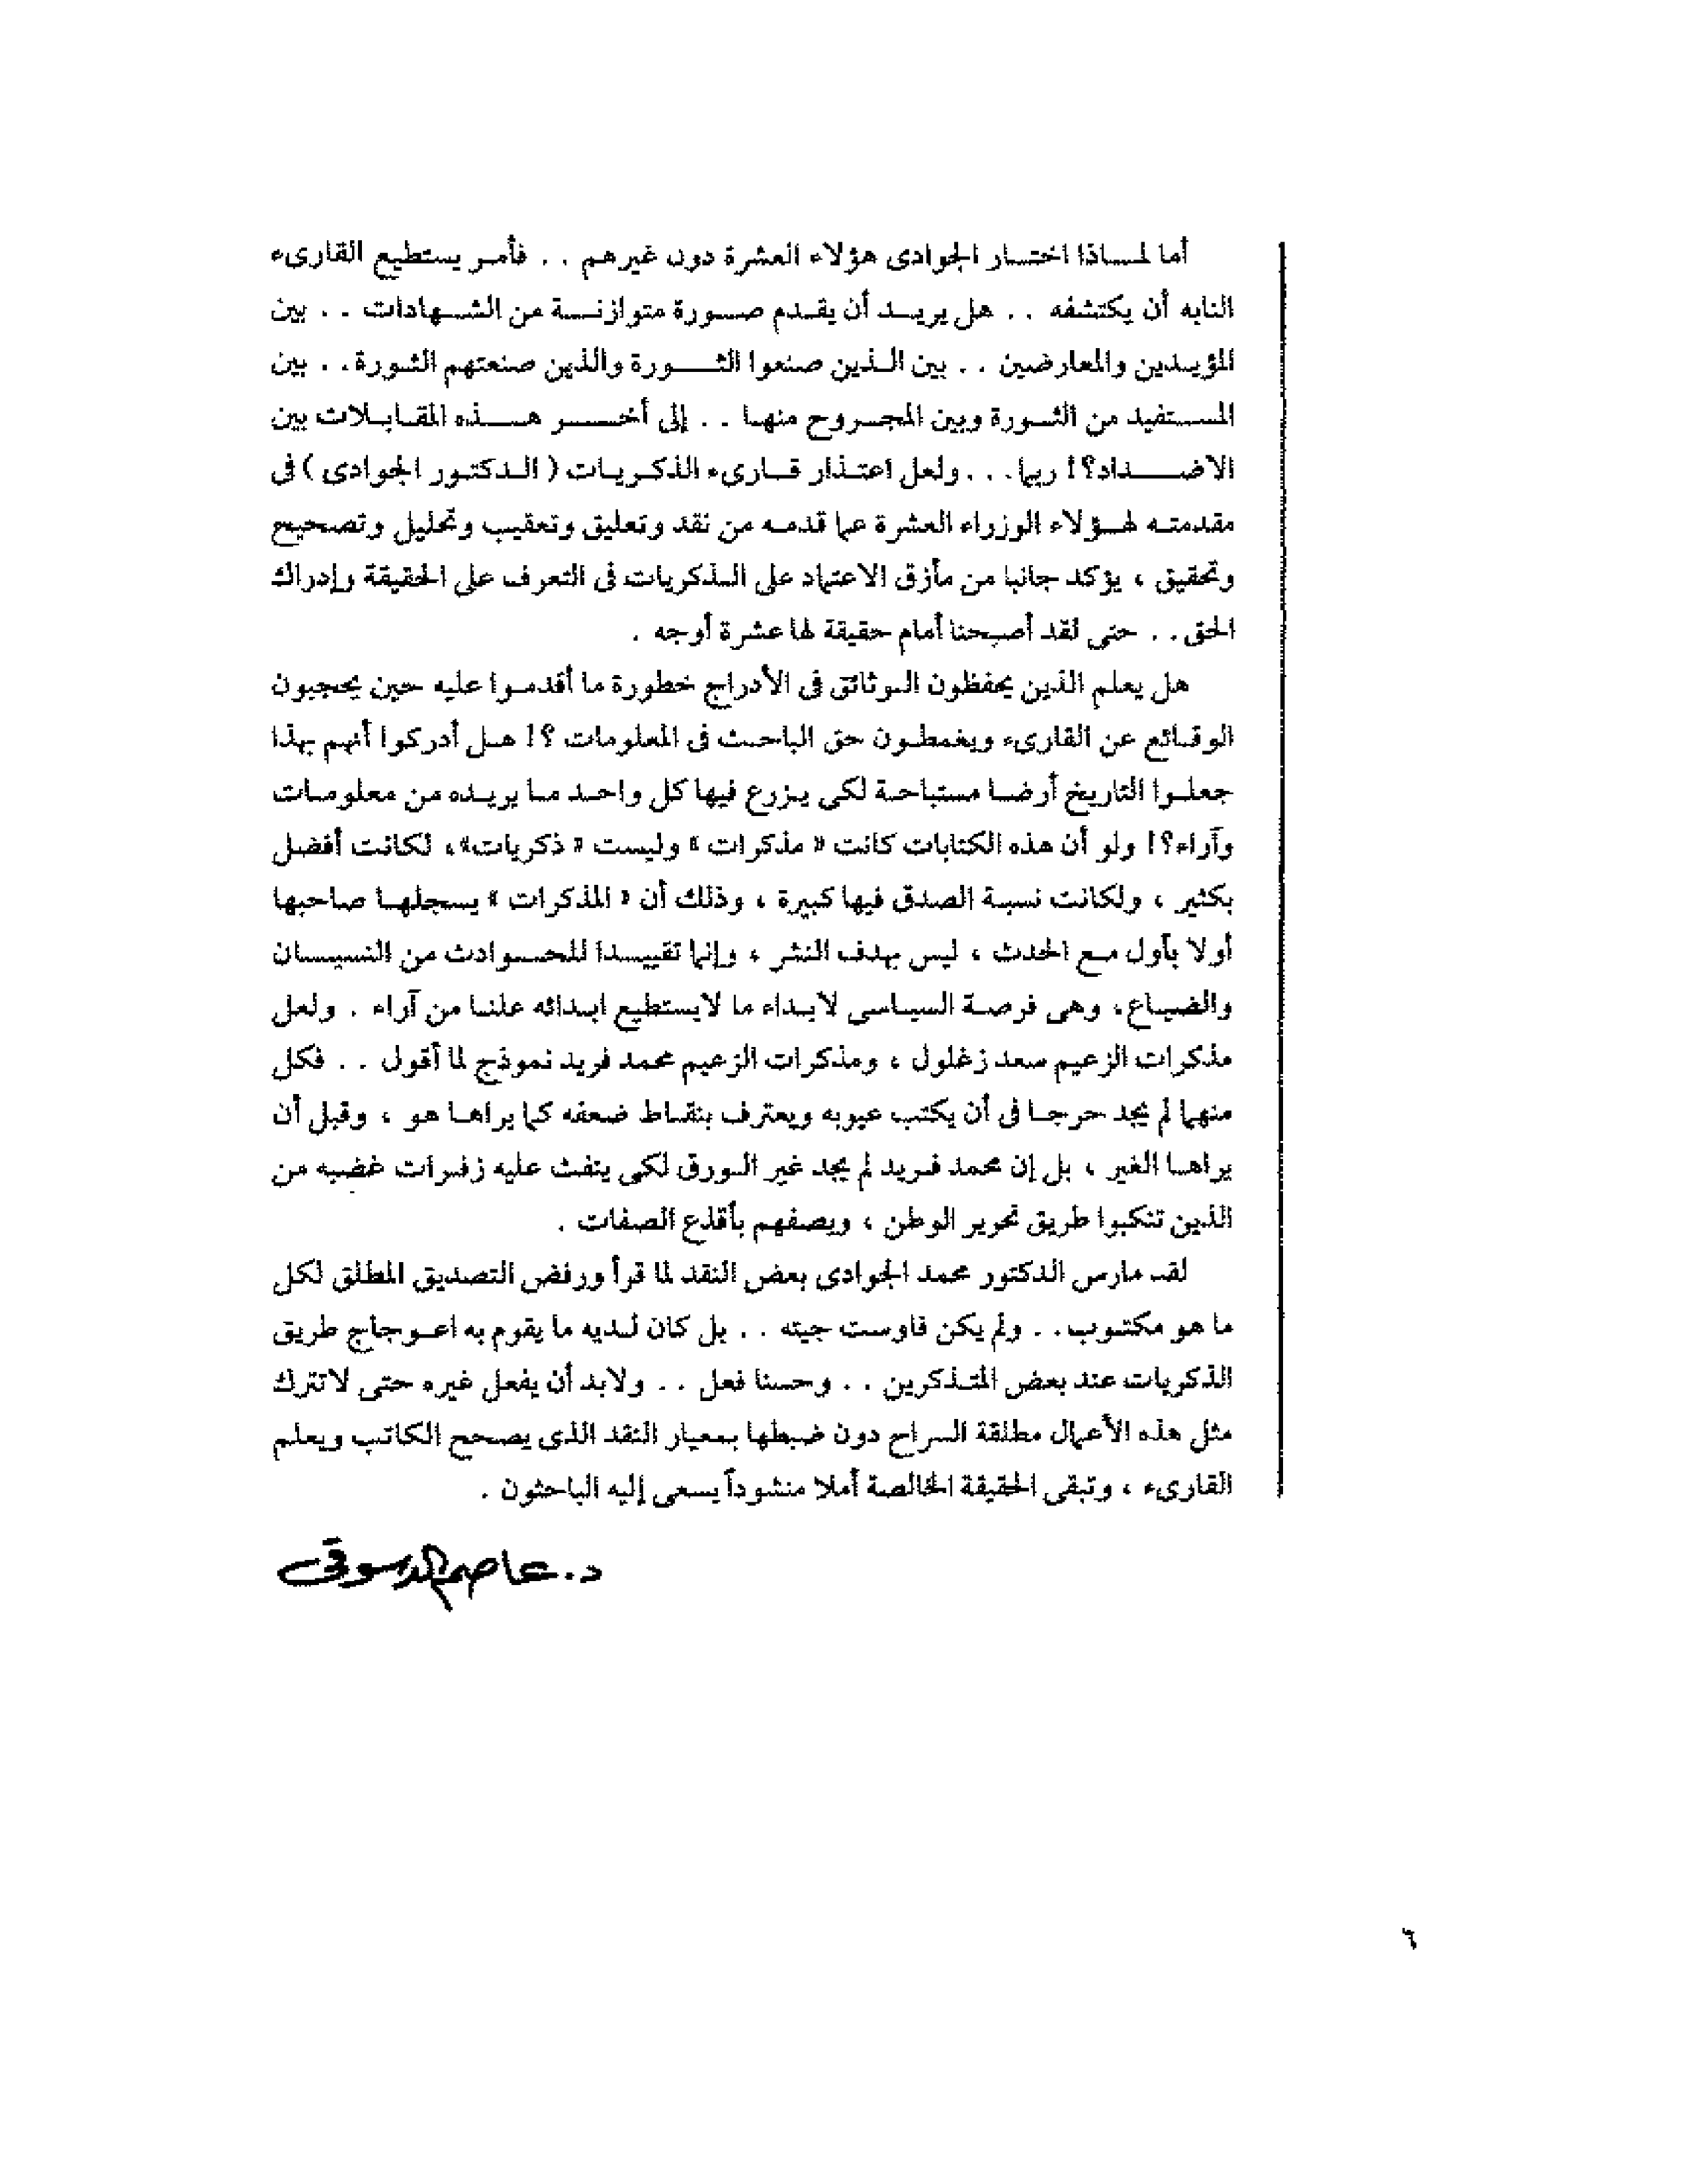 أما لمـاذا اختـار الجوادى هؤلاء العشرة دون غيرهم . . فأمـر يستطيع القارىء
النابه أن يكتشفه . . هل يريـد أن يقـدم صـورة متوازنـة من الشـهادات . . بين
المؤيـدين والمعارضين . . بين الـذين صنعوا الثـورة والذين صنعتهم الثورة. . بين
المستفيد من الثـورة وبين المجـروح منهـا . . إلى أخـر هـذه المقـابـلات بين
الاضـداد؟! ربما. . . ولعل اعتـذار قـارىء الذكـريـات ( الـدكتـور الجوادى ) فى
مقدمتـه لهـؤلاء الوزراء العشرة عما قدمـه من نقد وتعليق وتعقيب وتحليل وتصحيح
وتحقيق ، يؤكد جانبا من مأزق الاعتماد على الـذكريات فى التعرف على الحقيقة وإدراك
الحق. . حتى لقد أصبحنا أمام حقيقة لها عشرة أوجه .
هل يعلم الذين يحفظون الـوثائق فى الأدراج خطورة ما أقدمـوا عليه حين يحجبون
الوقـائع عن القارىء ويغمطـون حق الباحـث فى المعلومات ؟! هـل أدركوا أنهم بهذا
جعلـوا التاريخ أرضـا مستباحـة لكى يـزرع فيها كل واحـد مـا يريـده من معلومـات
وآراء؟! ولو أن هذه الكتابات كانت « مذكرات » وليست « ذكريات»، لكانت أفضل
بكثير ، ولكانت نسبـة الصدق فيها كبيرة ، وذلك أن « المذكرات » يسجلهـا صاحبها
أولا بأول مـع الحدث ، ليس بهدف النشر ، وإنما تقييـدا للحـوادث من النسيـان
والضيـاع، وهى فرصـة السيـاسى لابـداء ما لايستطيع ابـدائه علنـا من آراء . ولعل
مذكرات الزعيم سعد زغلول ، ومذكرات الزعيم محمد فريد نموذج لما أقول . . فكل
منهما لم يجد حرجـا فى أن يكتب عيوبه ويعترف بنقـاط ضعفه كما يراهـا هو ، وقبل أن
يراهـا الغير ، بل إن محمد فـريد لم يجد غير الـورق لكى ينفث عليه زفـرات غضبه من
الذين تنكبوا طريق تحرير الوطن ، ويصفهم بأقذع الصفات .
لقد مارس الدكتور محمد الجوادى بعض النقد لما قرأ ورفض التصديق المطلق لكل
ما هو مكتـوب. . ولم يكن فاوست جيته . . بل كان لـديه ما يقوم به اعـوجاج طريق
الذكريات عند بعض المتـذكرين . . وحسنا فعل . . ولابد أن يفعل غيره حتى لاتترك
مثل هذه الأعمال مطلقة السراح دون ضبطها بـمعيار النقد الذى يصحح الكاتب ويعلم
القارىء ، وتبقى الحقيقة الخالصة أملا منشوداً يسعى إليه الباحثون .
د. عاصم الدسوقى
٦